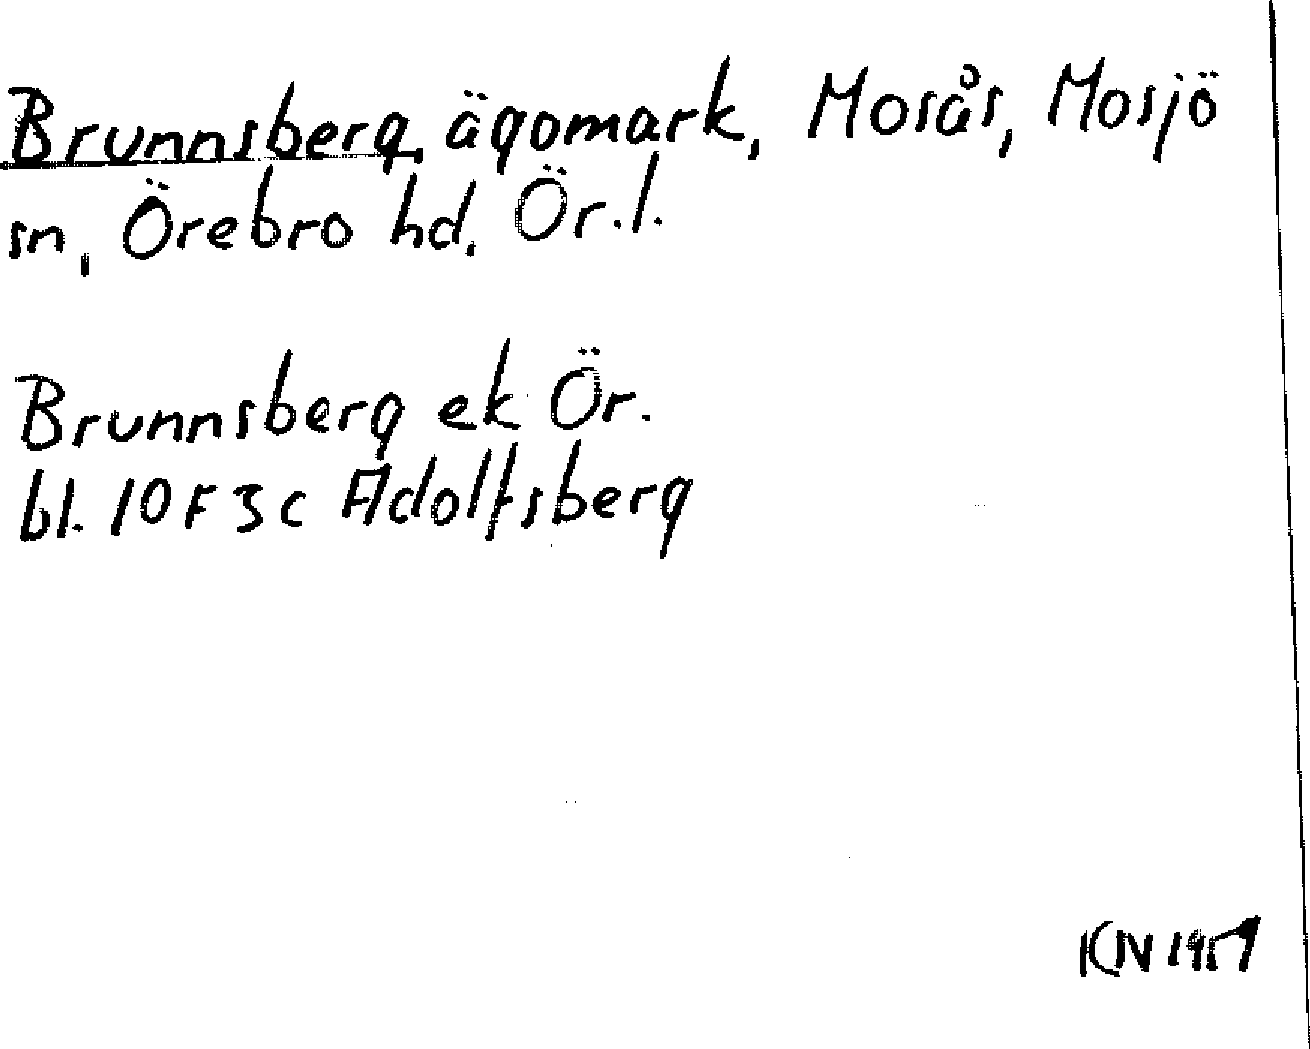 Brunnsberg, ägomark, Mosås, Mosjö
sn, Örebro hd. Ör.l.
Brunnsberg ek Ör.
bl. 10F 3c Adolfsberg
KN